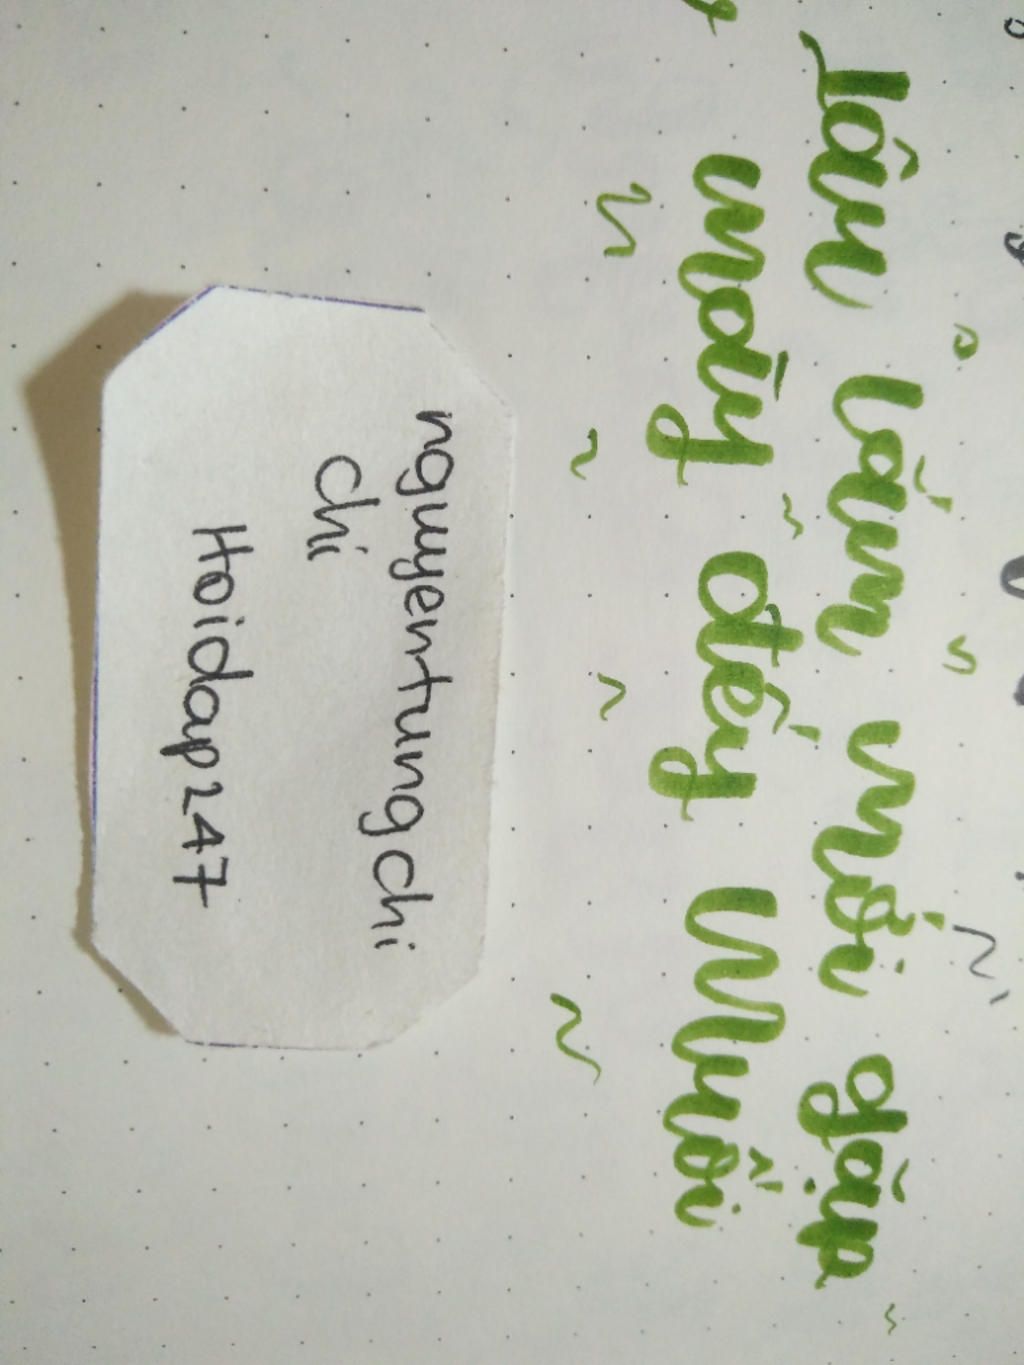 Lâu lắm mới gặp
mày đấy Muối
nguyentungchi
chi
Hoidap247